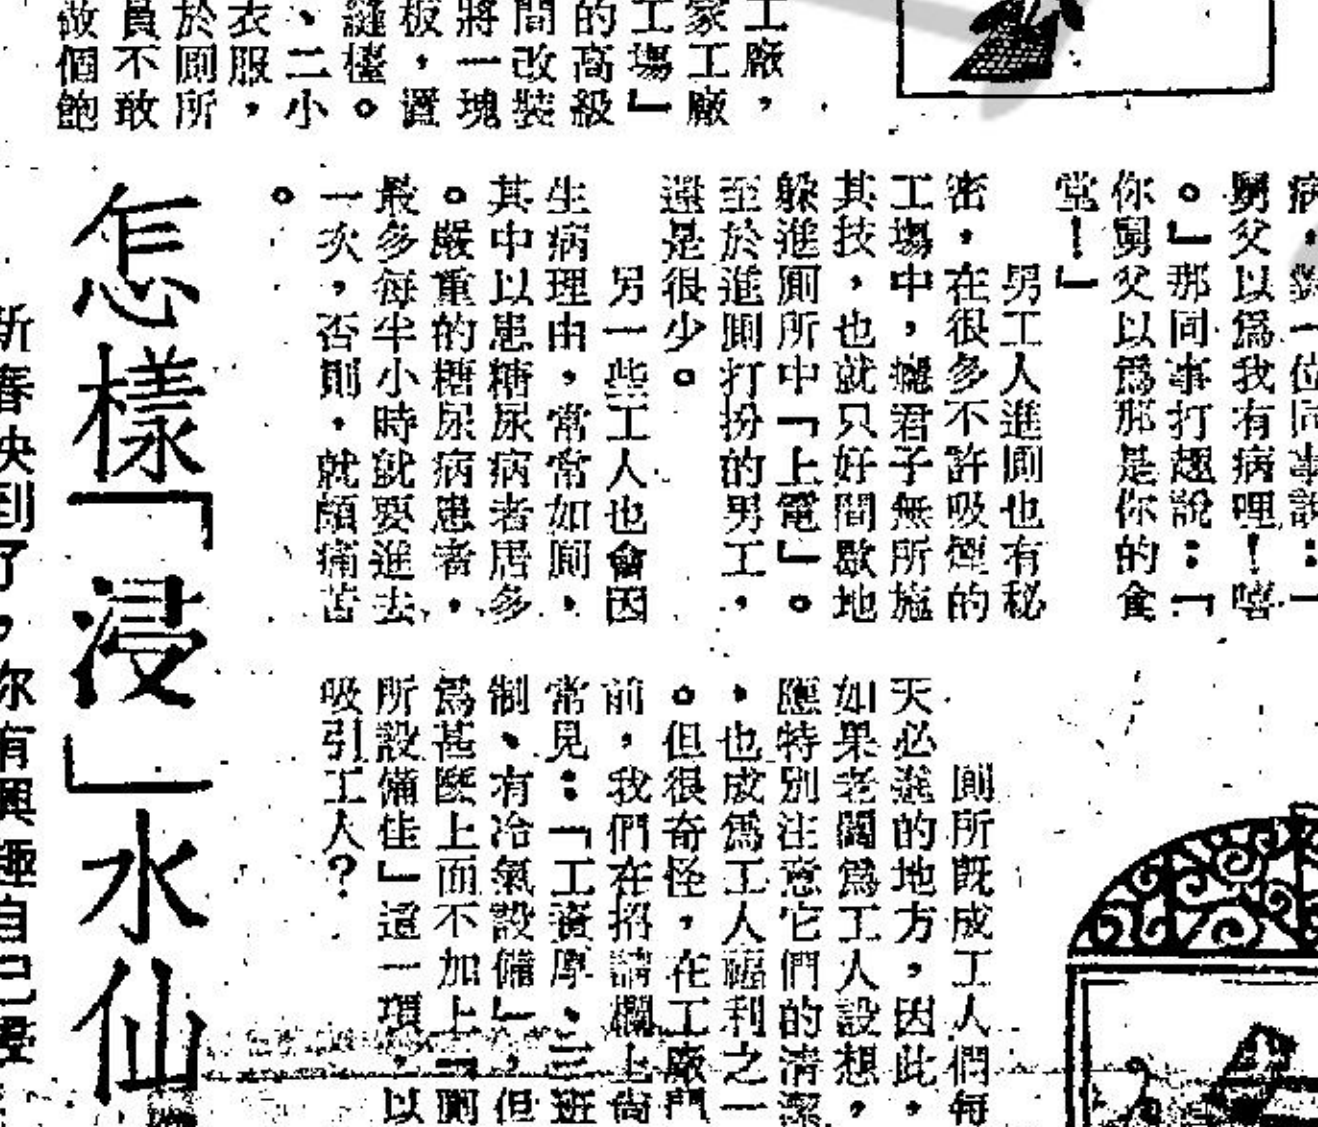 工廠，
家工廠
工場」
的高級
間改裝
將一塊
板，置
縫檯。
、二小
衣服，
於厠所
員不敢
做個飽
病，對一位同事說：「
舅父以爲我有病哩！嘻
。」那同事打趣說：「
你舅父以爲那是你的食
堂！」
男工人進厠也有秘
密，在很多不許吸煙的
工場中，癮君子無所施
其技，也就只好間歇地
躲進厠所中「上電」。
至於進厠打扮的男工，
還是很少。
另一些工人也會因
生病理由，常常如厠，
其中以患糖尿病者居多
。嚴重的糖尿病患者，
最多每半小時就要進去
一次，否則，就頗痛苦
。
厠所既成工人們每
天必進的地方，因此，
如果老闆爲工人設想，
應特別注意它們的清潔
，也成爲工人福利之一
。但很奇怪，在工廠門
前，我們在招請欄上尙
常見：「工資厚、三班
制、有冷氣設備」，但
爲甚麽上面不加上「厠
所設備佳」這一項，以
吸引工人？
怎樣「浸」水仙
新春快到了，你有興趣自己浸